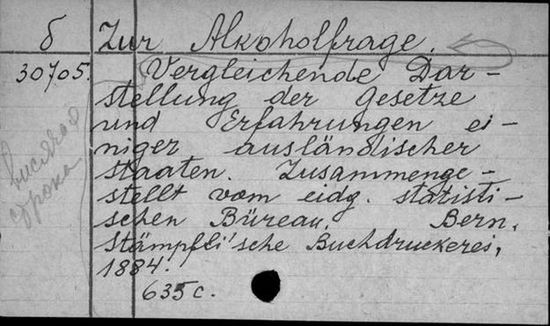 б Zur Alkoholfrage.
30705. Vergleichende Dar-
stellung der Gesetze
und Erfahrungen ei-
niger ausländischer
staaten. Zusammenge-
stellt vom eidg. statisti-
schen Büreau. Bern,
Stämpfli'sche Buchdruckerei,
1884.
635 с.
висячая
строка